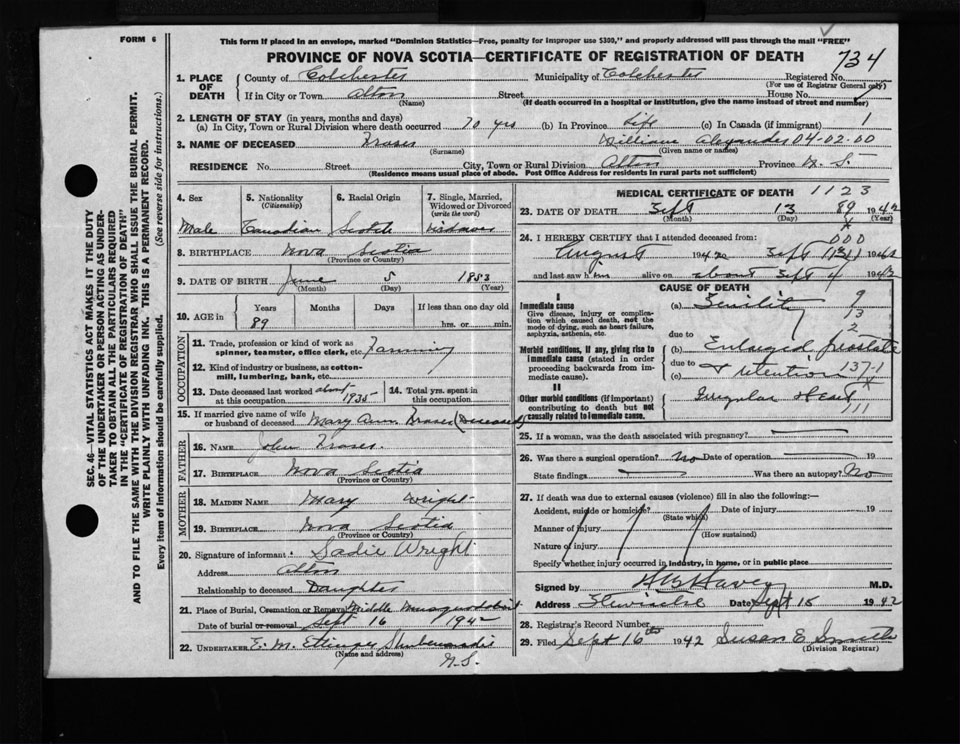 FORM 6
This form if placed in an envelope, marked "Dominion Statistics—Free, penalty for improper use $300," and properly addressed will pass through the mail "FREE"
PROVINCE OF NOVA SCOTIA—CERTIFICATE OF REGISTRATION OF DEATH
734
1. PLACE OF DEATH County of Colchester Municipality of Colchester Registered No.
(For use of Registrar General only)
If in City or Town Alton Street House No.
(Name) (If death occurred in a hospital or institution, give the name instead of street and number)
2. LENGTH OF STAY (in years, months and days)
(a) In City, Town or Rural Division where death occurred 70 yrs (b) In Province Life (c) In Canada (if immigrant) 1
3. NAME OF DECEASED Fraser William Alexander 04-02-00
(Surname) (Given name or names)
RESIDENCE No. Street City, Town or Rural Division Alton Province N. S.
(Residence means usual place of abode. Post Office Address for residents in rural parts not sufficient)
4. Sex Male
5. Nationality (Citizenship) Canadian
6. Racial Origin Scotch
7. Single, Married, Widowed or Divorced (write the word) Widower
8. BIRTHPLACE Nova Scotia
(Province or Country)
9. DATE OF BIRTH June 5 1853
(Month) (Day) (Year)
10. AGE in Years 89 Months Days If less than one day old hrs. or min.
OCCUPATION
11. Trade, profession or kind of work as spinner, teamster, office clerk, etc. Farming
12. Kind of industry or business, as cotton-mill, lumbering, bank, etc.
13. Date deceased last worked at this occupation about 1935
14. Total yrs. spent in this occupation
15. If married give name of wife or husband of deceased Mary Ann Fraser (Deceased)
FATHER
16. NAME John Fraser
17. BIRTHPLACE Nova Scotia
(Province or Country)
MOTHER
18. MAIDEN NAME Mary Wright
19. BIRTHPLACE Nova Scotia
(Province or Country)
20. Signature of informant Sadie Wright
Address Alton
Relationship to deceased Daughter
21. Place of Burial, Cremation or Removal Middle Musquodoboit
Date of burial or removal Sept 16 1942
22. UNDERTAKER E. M. Ettinger Shubenacadie
(Name and address)
N.S.
MEDICAL CERTIFICATE OF DEATH 1123
23. DATE OF DEATH Sept 13 89 1942
(Month) (Day) (Year)
24. I HEREBY CERTIFY that I attended deceased from: 000
August 1942 to Sept 1942
and last saw him alive on about Sept 4 1942
CAUSE OF DEATH
I
Immediate cause
Give disease, injury or complication which caused death, not the mode of dying, such as heart failure, asphyxia, asthenia, etc.
(a) Senility 9
13
due to 2
Morbid conditions, if any, giving rise to immediate cause (stated in order proceeding backwards from immediate cause).
(b) Enlarged prostate
due to & retention 137-1
(c)
II
Other morbid conditions (if important) contributing to death but not causally related to immediate cause.
Irregular Heart
111
25. If a woman, was the death associated with pregnancy?
26. Was there a surgical operation? No Date of operation 19
State findings Was there an autopsy? No
27. If death was due to external causes (violence) fill in also the following:—
Accident, suicide or homicide? Date of injury 19
(State which)
Manner of injury
(How sustained)
Nature of injury
Specify whether injury occurred in industry, in home, or in public place
Signed by H B Havey M.D.
Address Stewiacke Date Sept 15 1942
28. Registrar's Record Number
29. Filed Sept 16th 1942 Susan E Smith
(Division Registrar)
SEC. 46—VITAL STATISTICS ACT MAKES IT THE DUTY
OF THE UNDERTAKER OR PERSON ACTING AS UNDER-
TAKER TO OBTAIN ALL THE PARTICULARS REQUIRED
IN THE "CERTIFICATE OF REGISTRATION OF DEATH"
AND TO FILE THE SAME WITH THE DIVISION REGISTRAR WHO SHALL ISSUE THE BURIAL PERMIT.
WRITE PLAINLY WITH UNFADING INK. THIS IS A PERMANENT RECORD.
Every item of information should be carefully supplied. (See reverse side for instructions.)